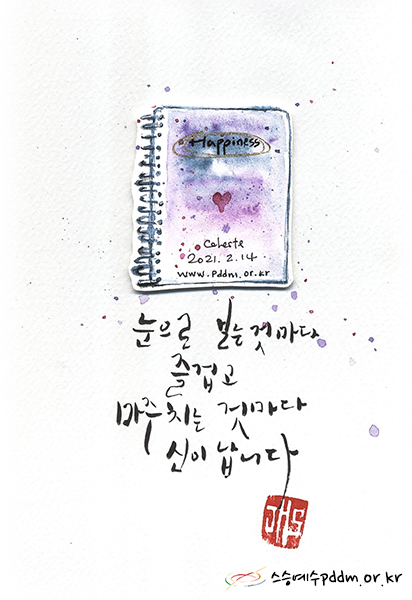 Happiness
Celeste
2021. 2. 14
www.pddm.or.kr
눈으로 보는것마다
즐겁고
마주치는 것마다
신이 납니다
JHS
스승예수pddm.or.kr